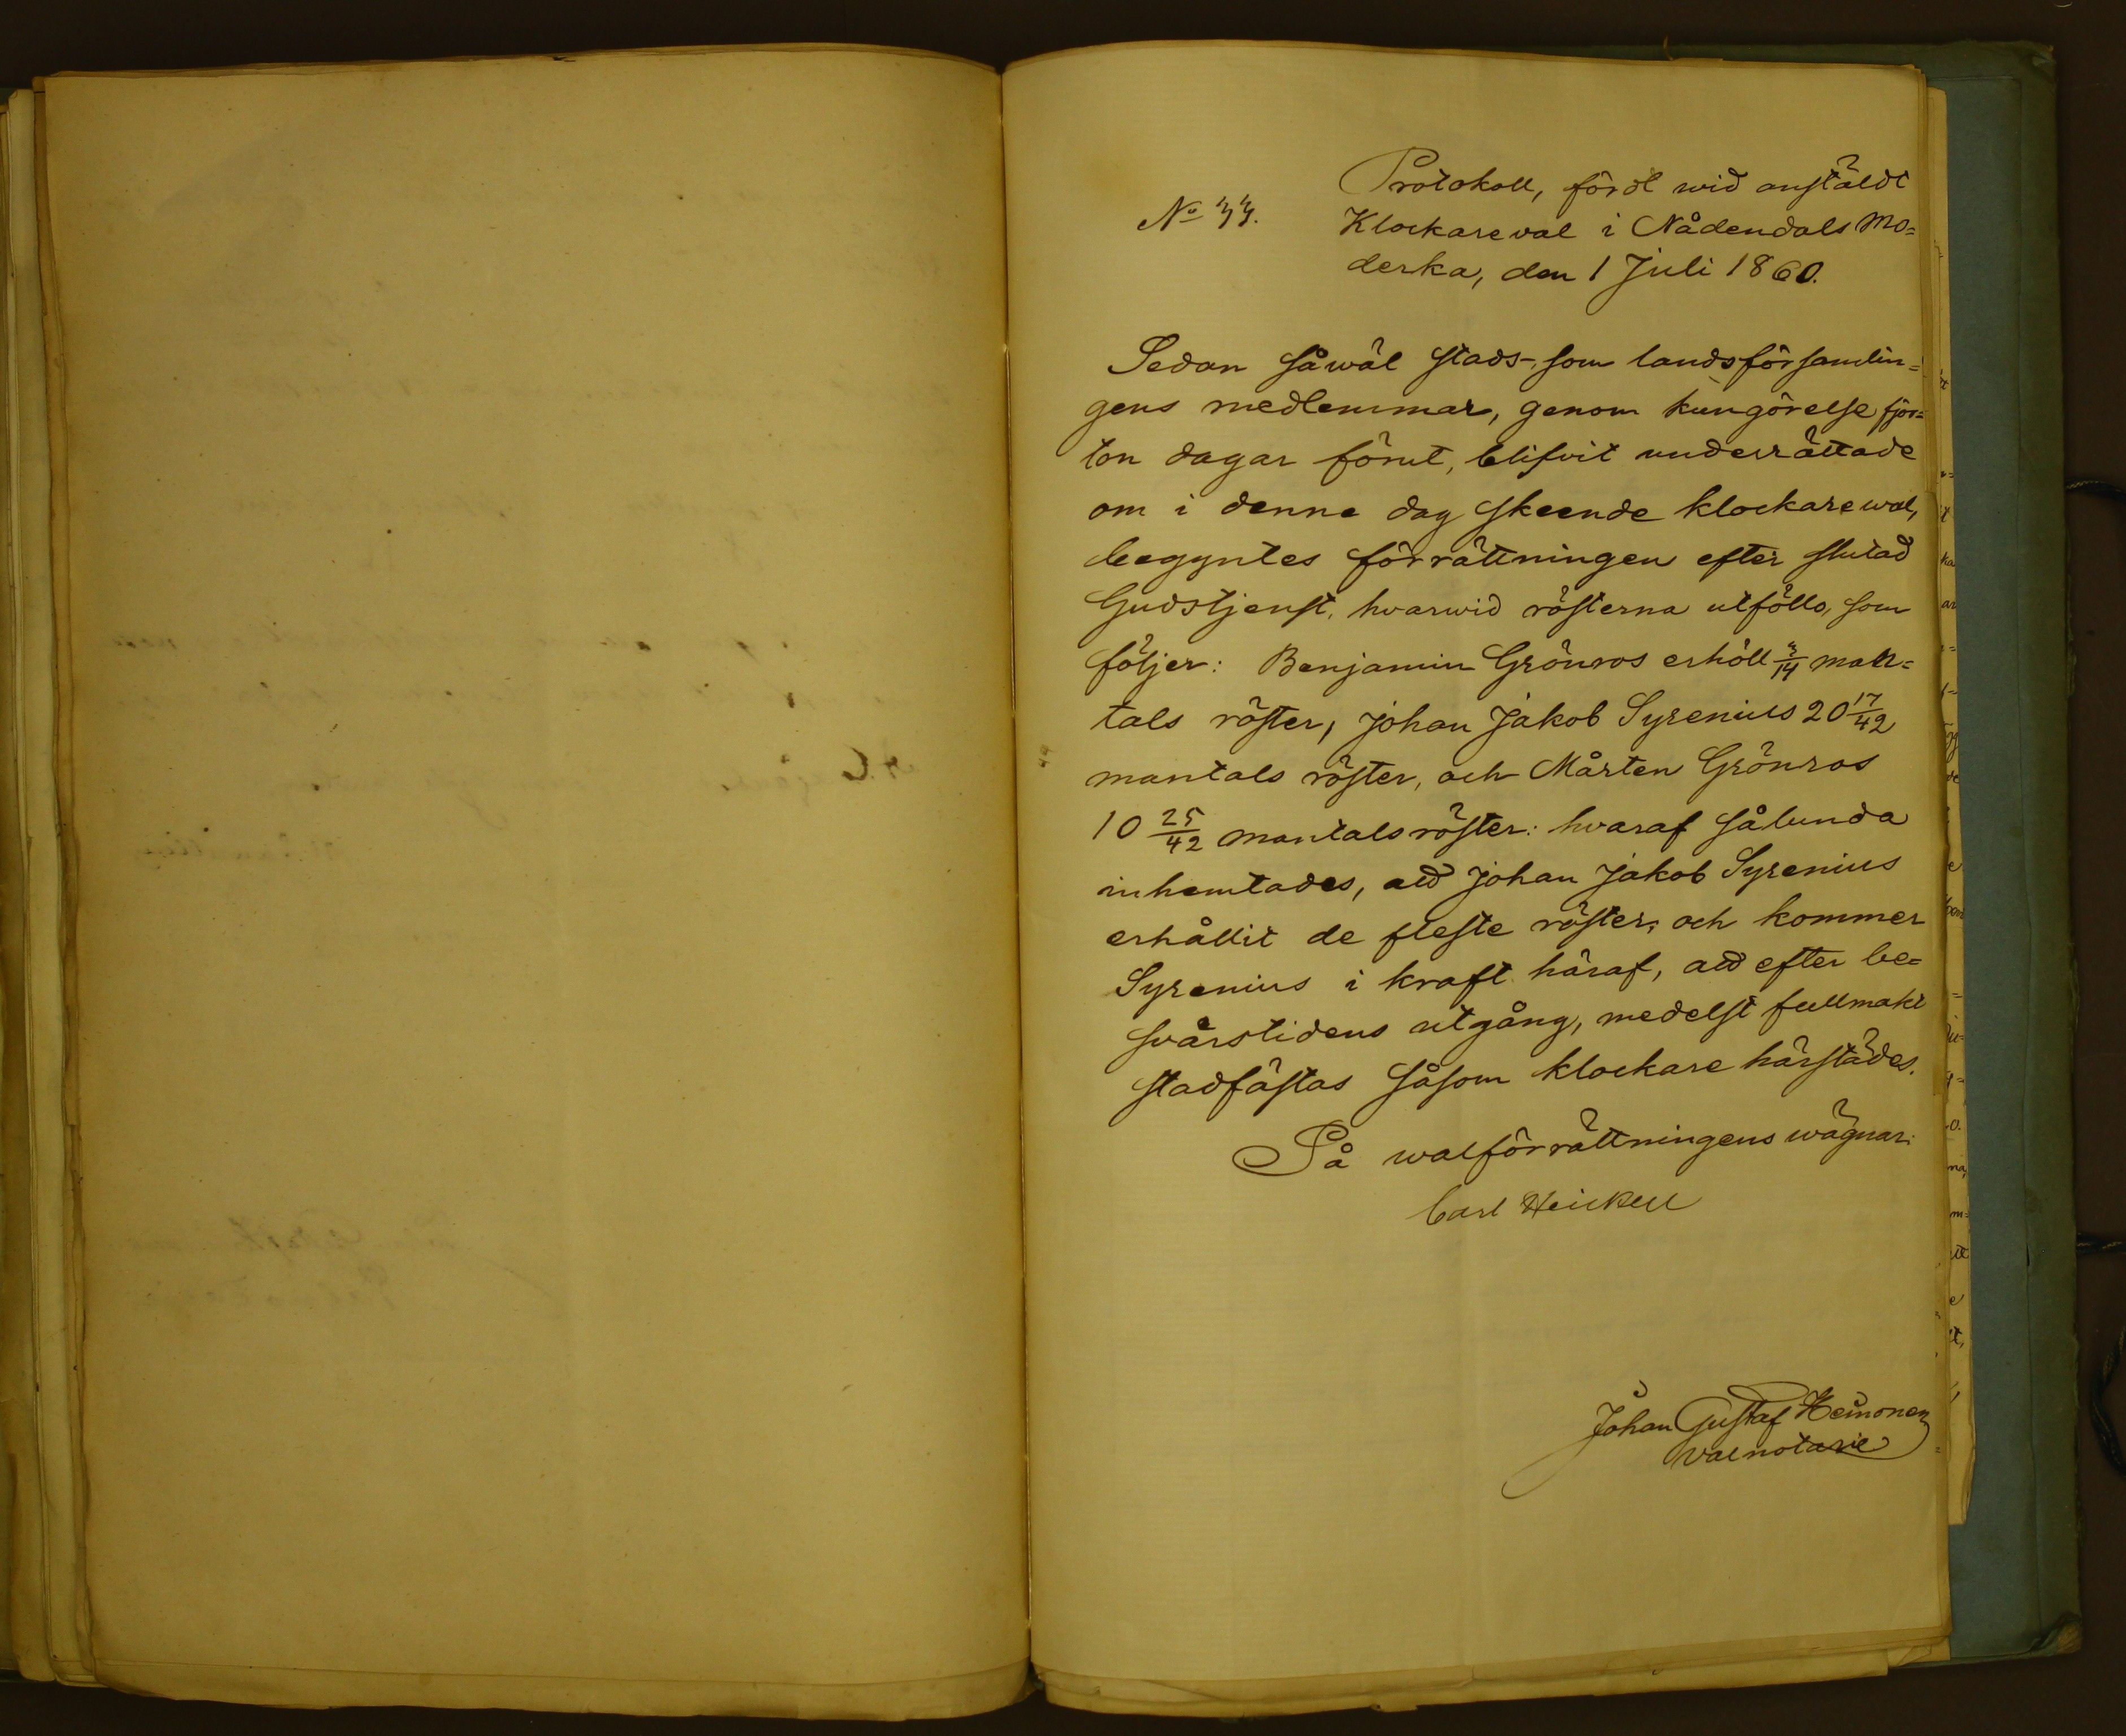 Protokoll, fördt wid anstäldt
N° 33.
Klockareval i Nådendals Mo=
derka, den 1 Juli 1860.
Sedan såwäl stads-, som landsförsamlin=
gens medlemmar, genom kungörelse fjor=
ton dagar förut, blifvit underrättade
om i denne dag skeende klockarewal,
begyntes förrättningen efter slutad
Gudstjenst, hvarwid rösterna utföllo, som
följer: Benjamin Grönros erhöll 3/14 man=
tals röster, Johan Jakob Syrenius 20 17/42
mantals röster, och Mårten Grönros
10 25/42 mantals röster: hvaraf sålunda
inhemtades, att Johan Jakob Syrenius
erhållit de fleste röster; och kommer
Syrenius i kraft häraf, att efter be=
svärstidens utgång, medelst fullmakt
stadfästas såsom klockare härstädes.
På walförrättningens wägnar:
Carl Heickell
Johan Gustaf Heinonen
valnotarie